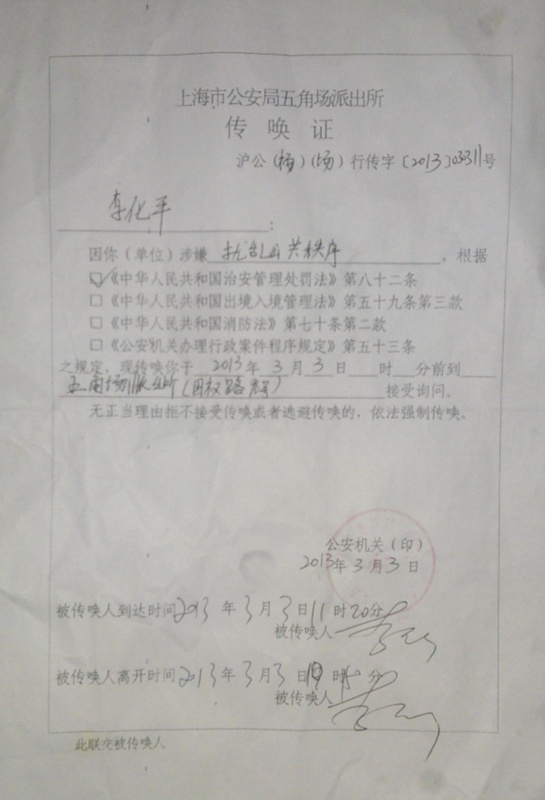 上海市公安局五角场派出所
传唤证
沪公(杨)(场)行传字〔2013〕03311号
李化平:
因你(单位)涉嫌扰乱公共秩序,根据
☑《中华人民共和国治安管理处罚法》第八十二条
□《中华人民共和国出境入境管理法》第五十九条第三款
□《中华人民共和国消防法》第七十条第二款
□《公安机关办理行政案件程序规定》第五十三条
之规定,现传唤你于2013年3月3日 时 分前到
五角场派出所(国权路 接受询问。
无正当理由拒不接受传唤或者逃避传唤的,依法强制传唤。
公安机关(印)
2013年3月3日
被传唤人到达时间2013年3月3日11时20分
被传唤人
被传唤人离开时间2013年3月3日 时 分
被传唤人
此联交被传唤人